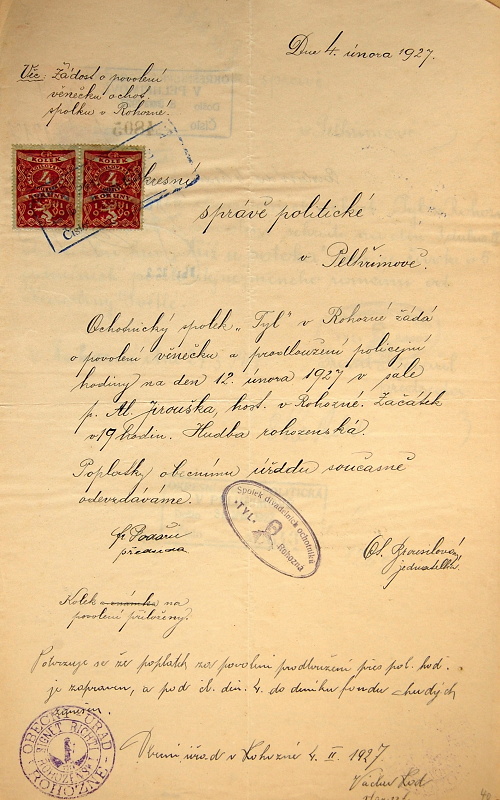 Dne 4. února 1927.
Věc: Žádost o povolení
věnečku ochot.
spolku v Rohozné.
1805
KOLEK KOLEK
4 4
KORUNY KORUNY
Okresní
správě politické
v Pelhřimově.
Ochotnický spolek „Tyl" v Rohozné žádá
o povolení věnečku a prodloužení policejní
hodiny na den 12. února 1927 v sále
p. Al. Jirouška, host. v Rohozné. Začátek
v 19 hodin. Hudba rohozenská.
Poplatky obecnímu úřadu současně
odevzdáváme.
Spolek divadelních ochotníků
"TYL"
Rohozná
předseda
jednatelka
Kolek a známka na
povolení přiloženy.
Potvrzuje se že poplatek za povolení prodloužení přes pol. hod.
je zapraven, a pod čl. din. 4. do deníku fondu chudých
OBECNÍ ÚŘAD
ROHOZNÉ
v Rohozné 4. II. 1927
Václav